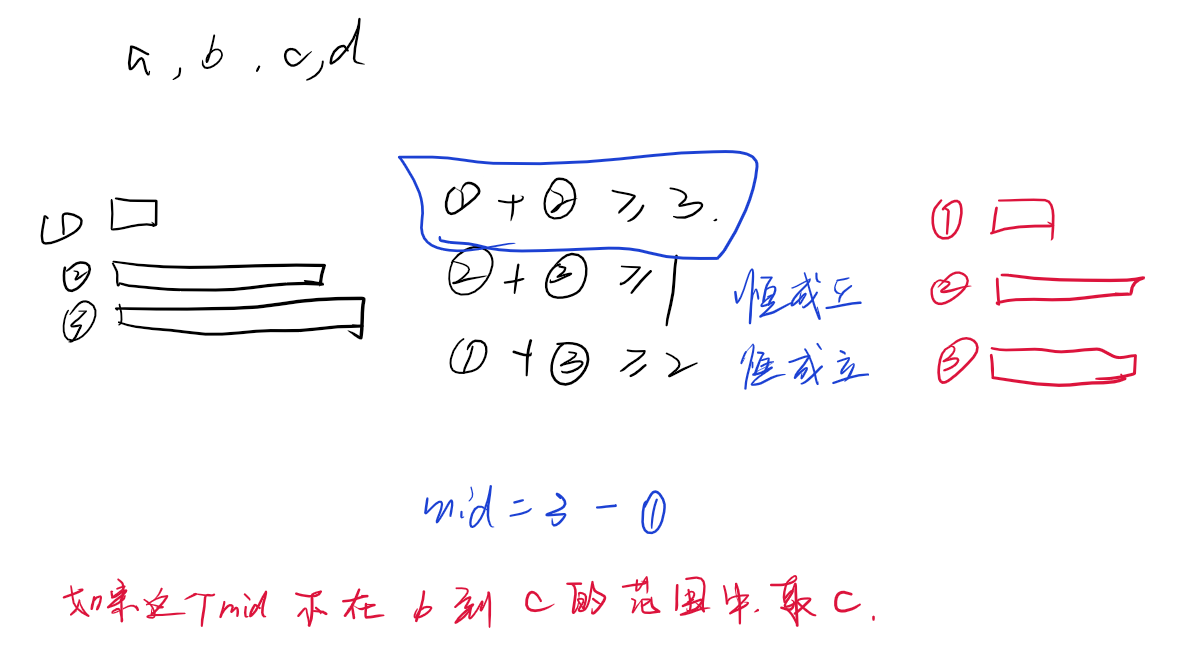 a, b, c, d
①
②
③
① + ② ≥ 3.
② + ③ ≥ 1 恒成立
① + ③ ≥ 2 恒成立
①
②
③
mid = 3 - ①
如果这个mid 不在 b 到 c 的范围中. 取 c.